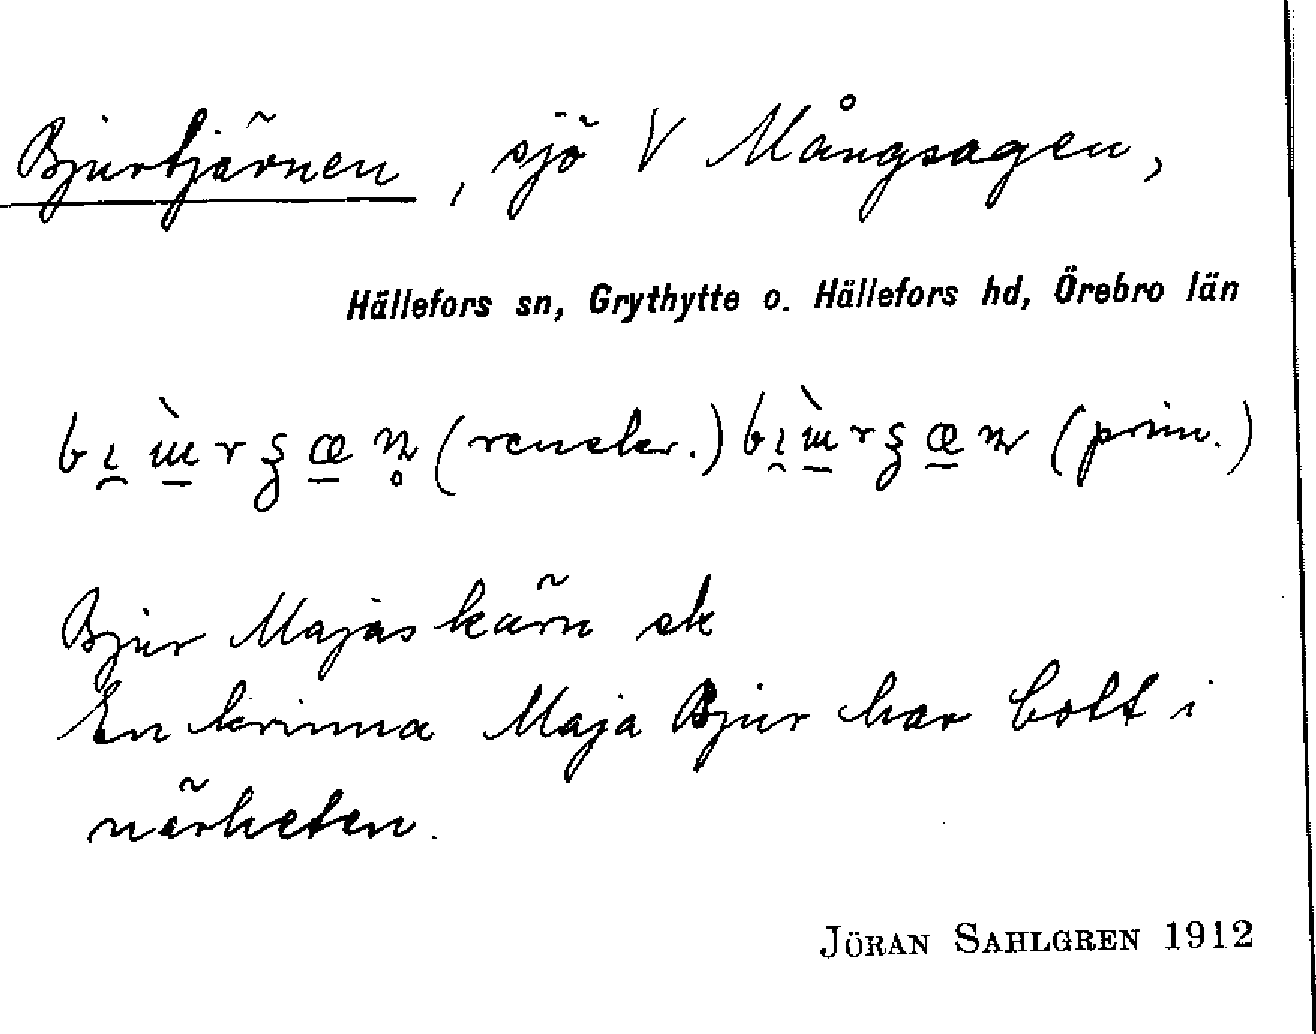 Bjurtjärnen, sjö V Mångsagen,
Hällefors sn, Grythytte o. Hällefors hd, Örebro län
(renskr.) (prim.)
Bjur Majas kärn sk
En kvinna Maja Bjur har bott i
närheten.
JÖRAN SAHLGREN 1912